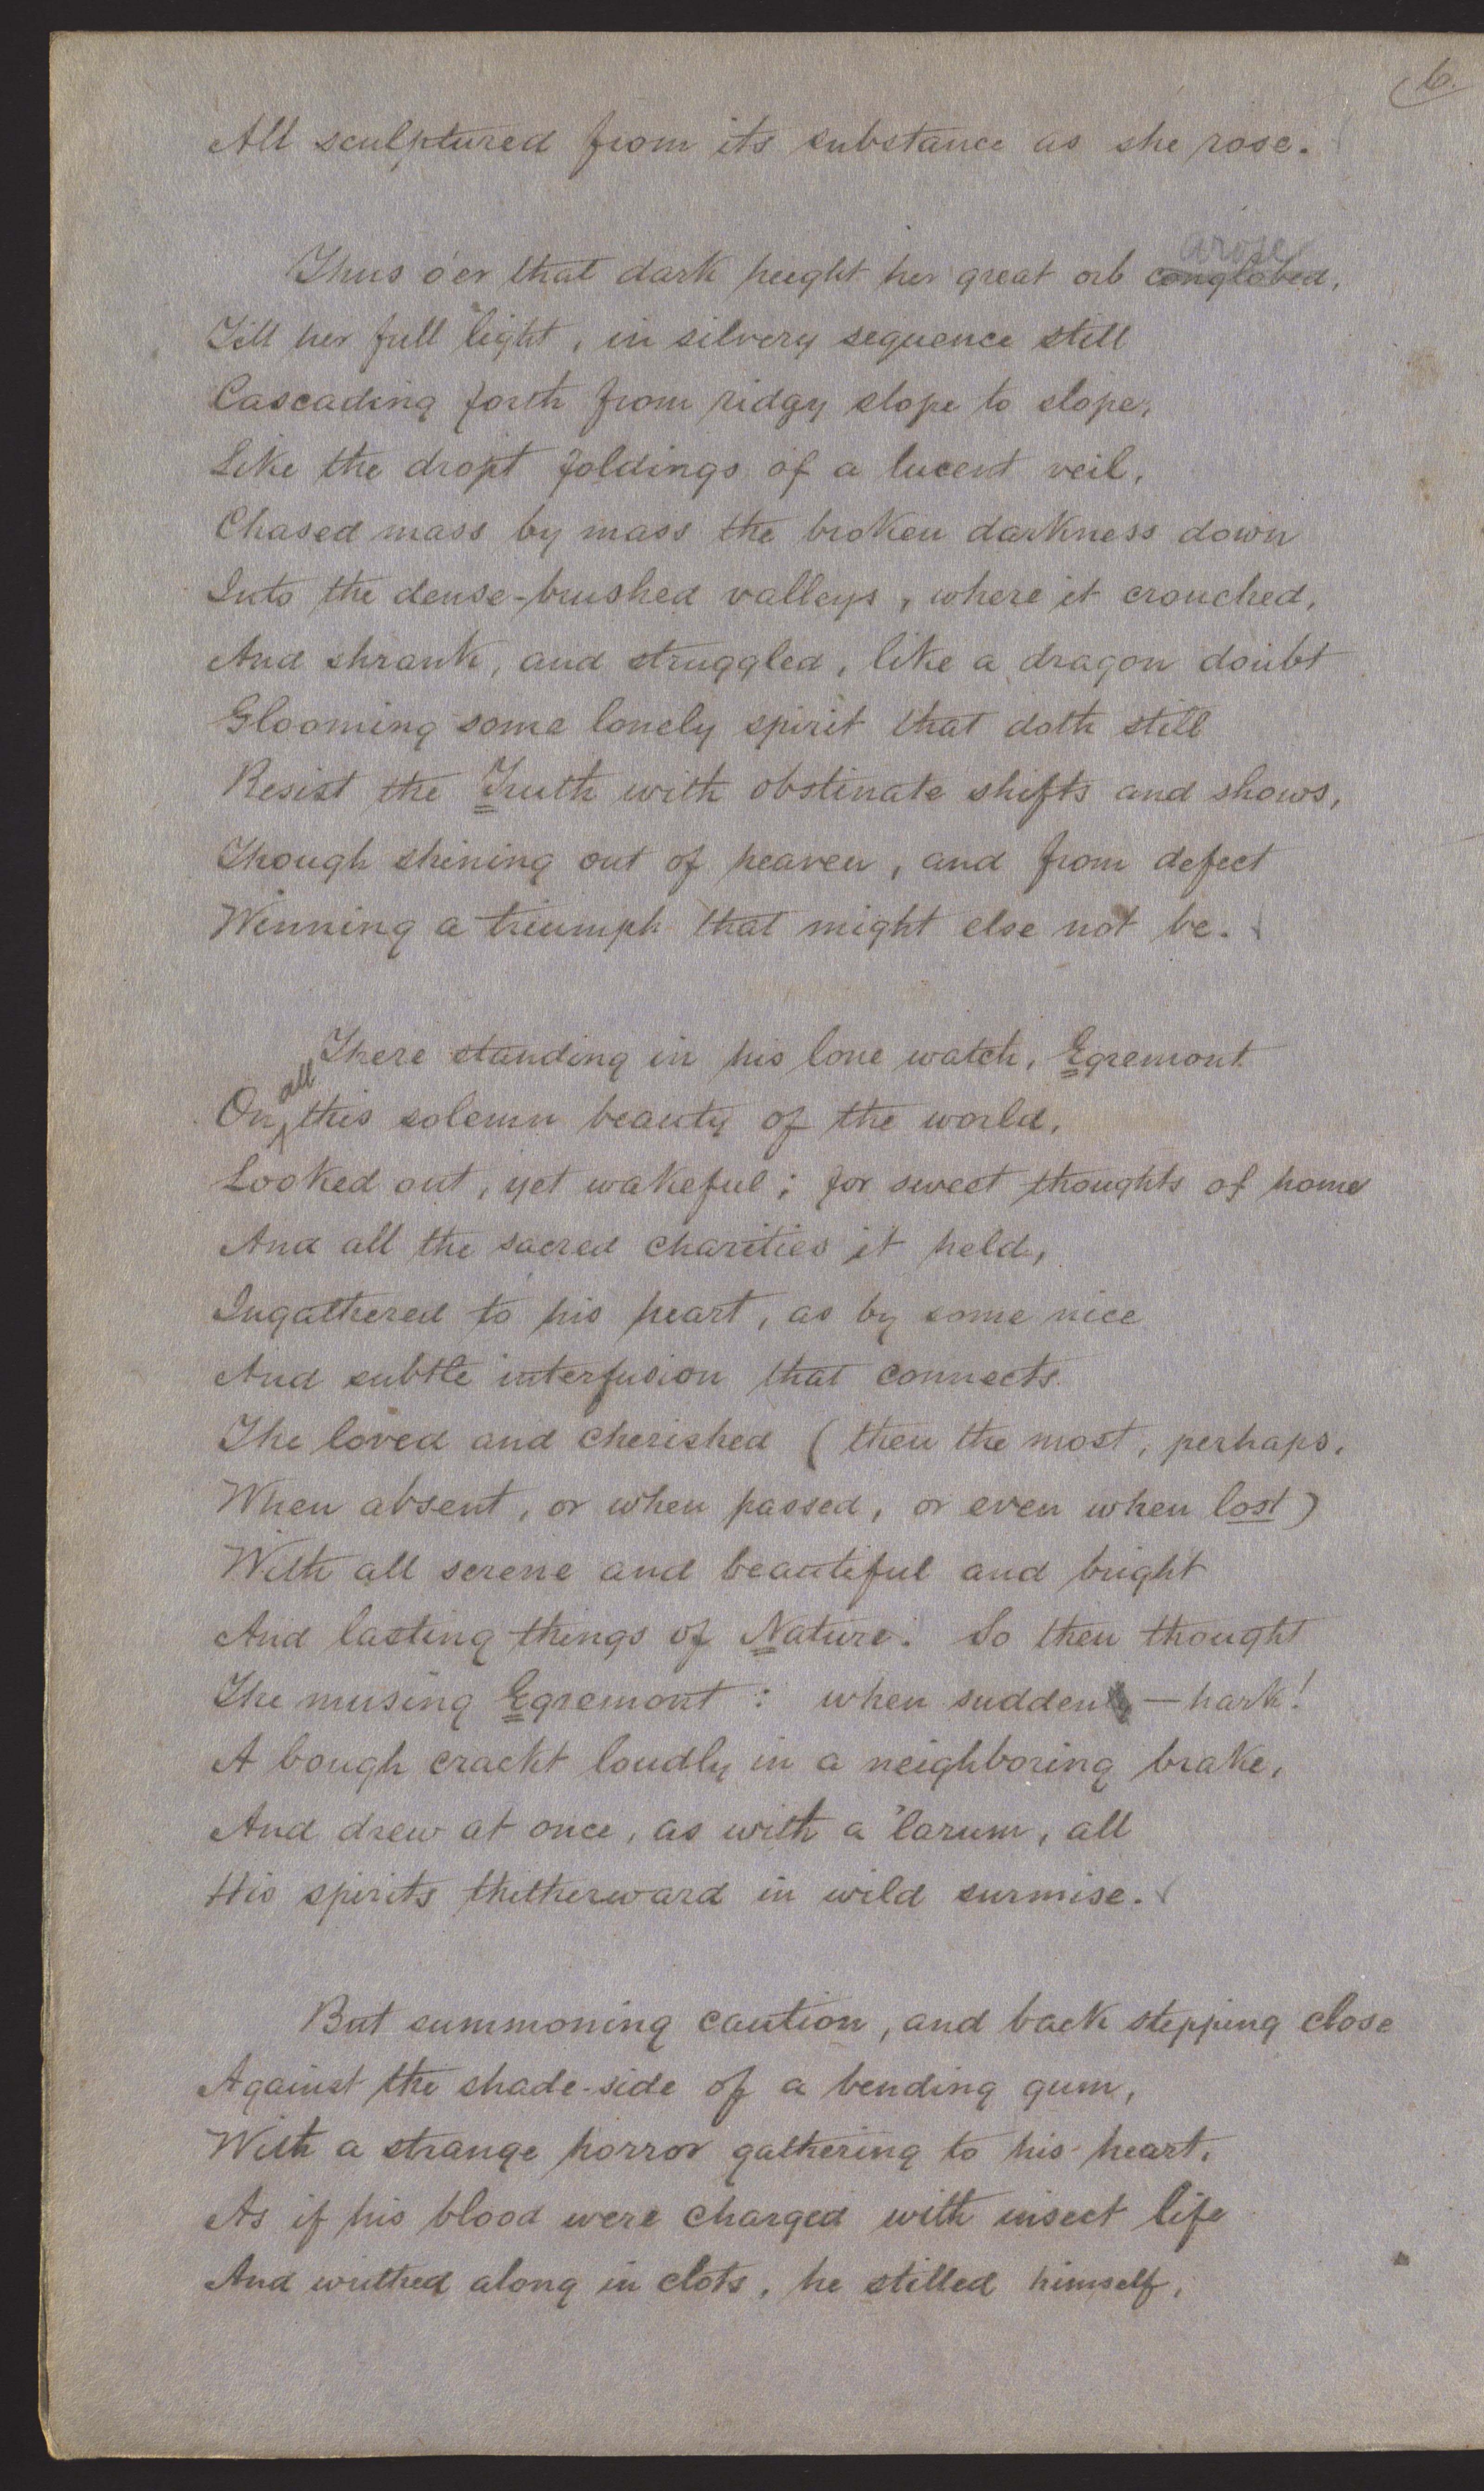 6.
All sculptured from its substance as she rose.
arose
Thus o'er that dark height her great orb conglobed,
Till her full light, in silvery sequence still
Cascading forth from ridgy slope to slope,
Like the dropt foldings of a lucent veil,
Chased mass by mass the broken darkness down
Into the dense-brushed valleys, where it crouched,
And shrank, and struggled, like a dragon doubt
Glooming some lonely spirit that doth still
Resist the Truth with obstinate shifts and shows,
Though shining out of heaven, and from defect
Winning a triumph that might else not be.
There standing in his lone watch, Egremont
all
On this solemn beauty of the world,
Looked out, yet wakeful; for sweet thoughts of home
And all the sacred charities it held,
Ingathered to his heart, as by some nice
And subtle interfusion that connects
The loved and cherished (then the most, perhaps,
When absent, or when passed, or even when lost)
With all serene and beautiful and bright
And lasting things of Nature. So then thought
The musing Egremont: when sudden—hark!
A bough crackt loudly in a neighboring brake,
And drew at once, as with a 'larum, all
His spirits thitherward in wild surmise.
But summoning caution, and back stepping close
Against the shade-side of a bending gum,
With a strange horror gathering to his heart,
As if his blood were charged with insect life
And writhed along in clots, he stilled himself,